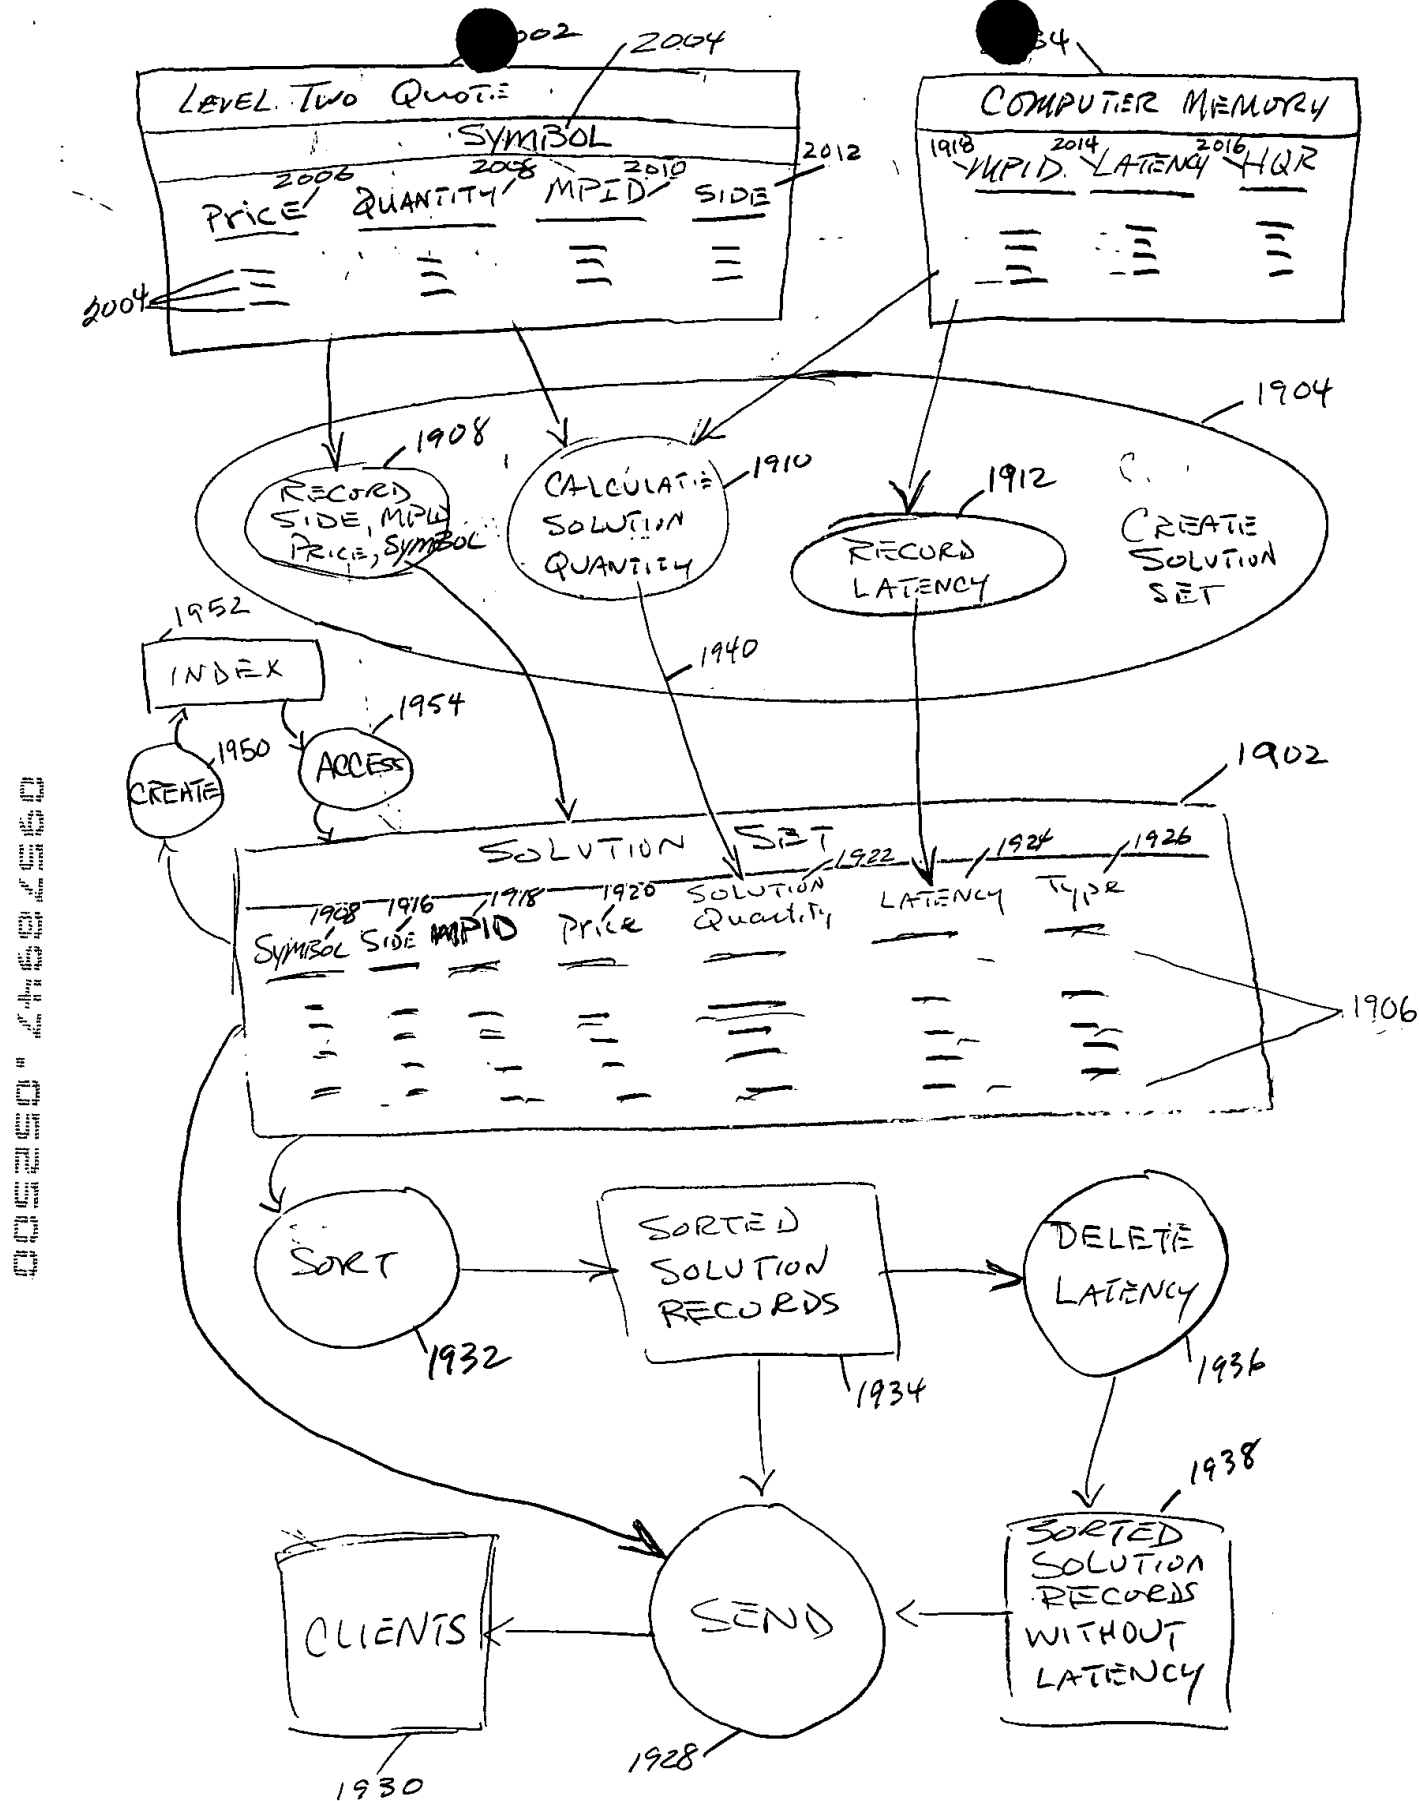 2004
LEVEL TWO QUOTE
SYMBOL
2006 2008 2010 2012
PRICE QUANTITY MPID SIDE
2004
COMPUTER MEMORY
1918 2014 2016
MPID LATENCY HQR
1904
1908
RECORD
SIDE, MPID
PRICE, SYMBOL
1910
CALCULATE
SOLUTION
QUANTITY
1912
RECORD
LATENCY
CREATE
SOLUTION
SET
1952
INDEX
1940
1954
ACCESS
1950
CREATE
1902
SOLUTION SET
1908 1916 1918 1920 1922 1924 1926
SYMBOL SIDE MPID Price SOLUTION Quantity LATENCY Type
1906
SORT
1932
SORTED
SOLUTION
RECORDS
1934
DELETE
LATENCY
1936
1938
SORTED
SOLUTION
RECORDS
WITHOUT
LATENCY
SEND
1928
CLIENTS
1930